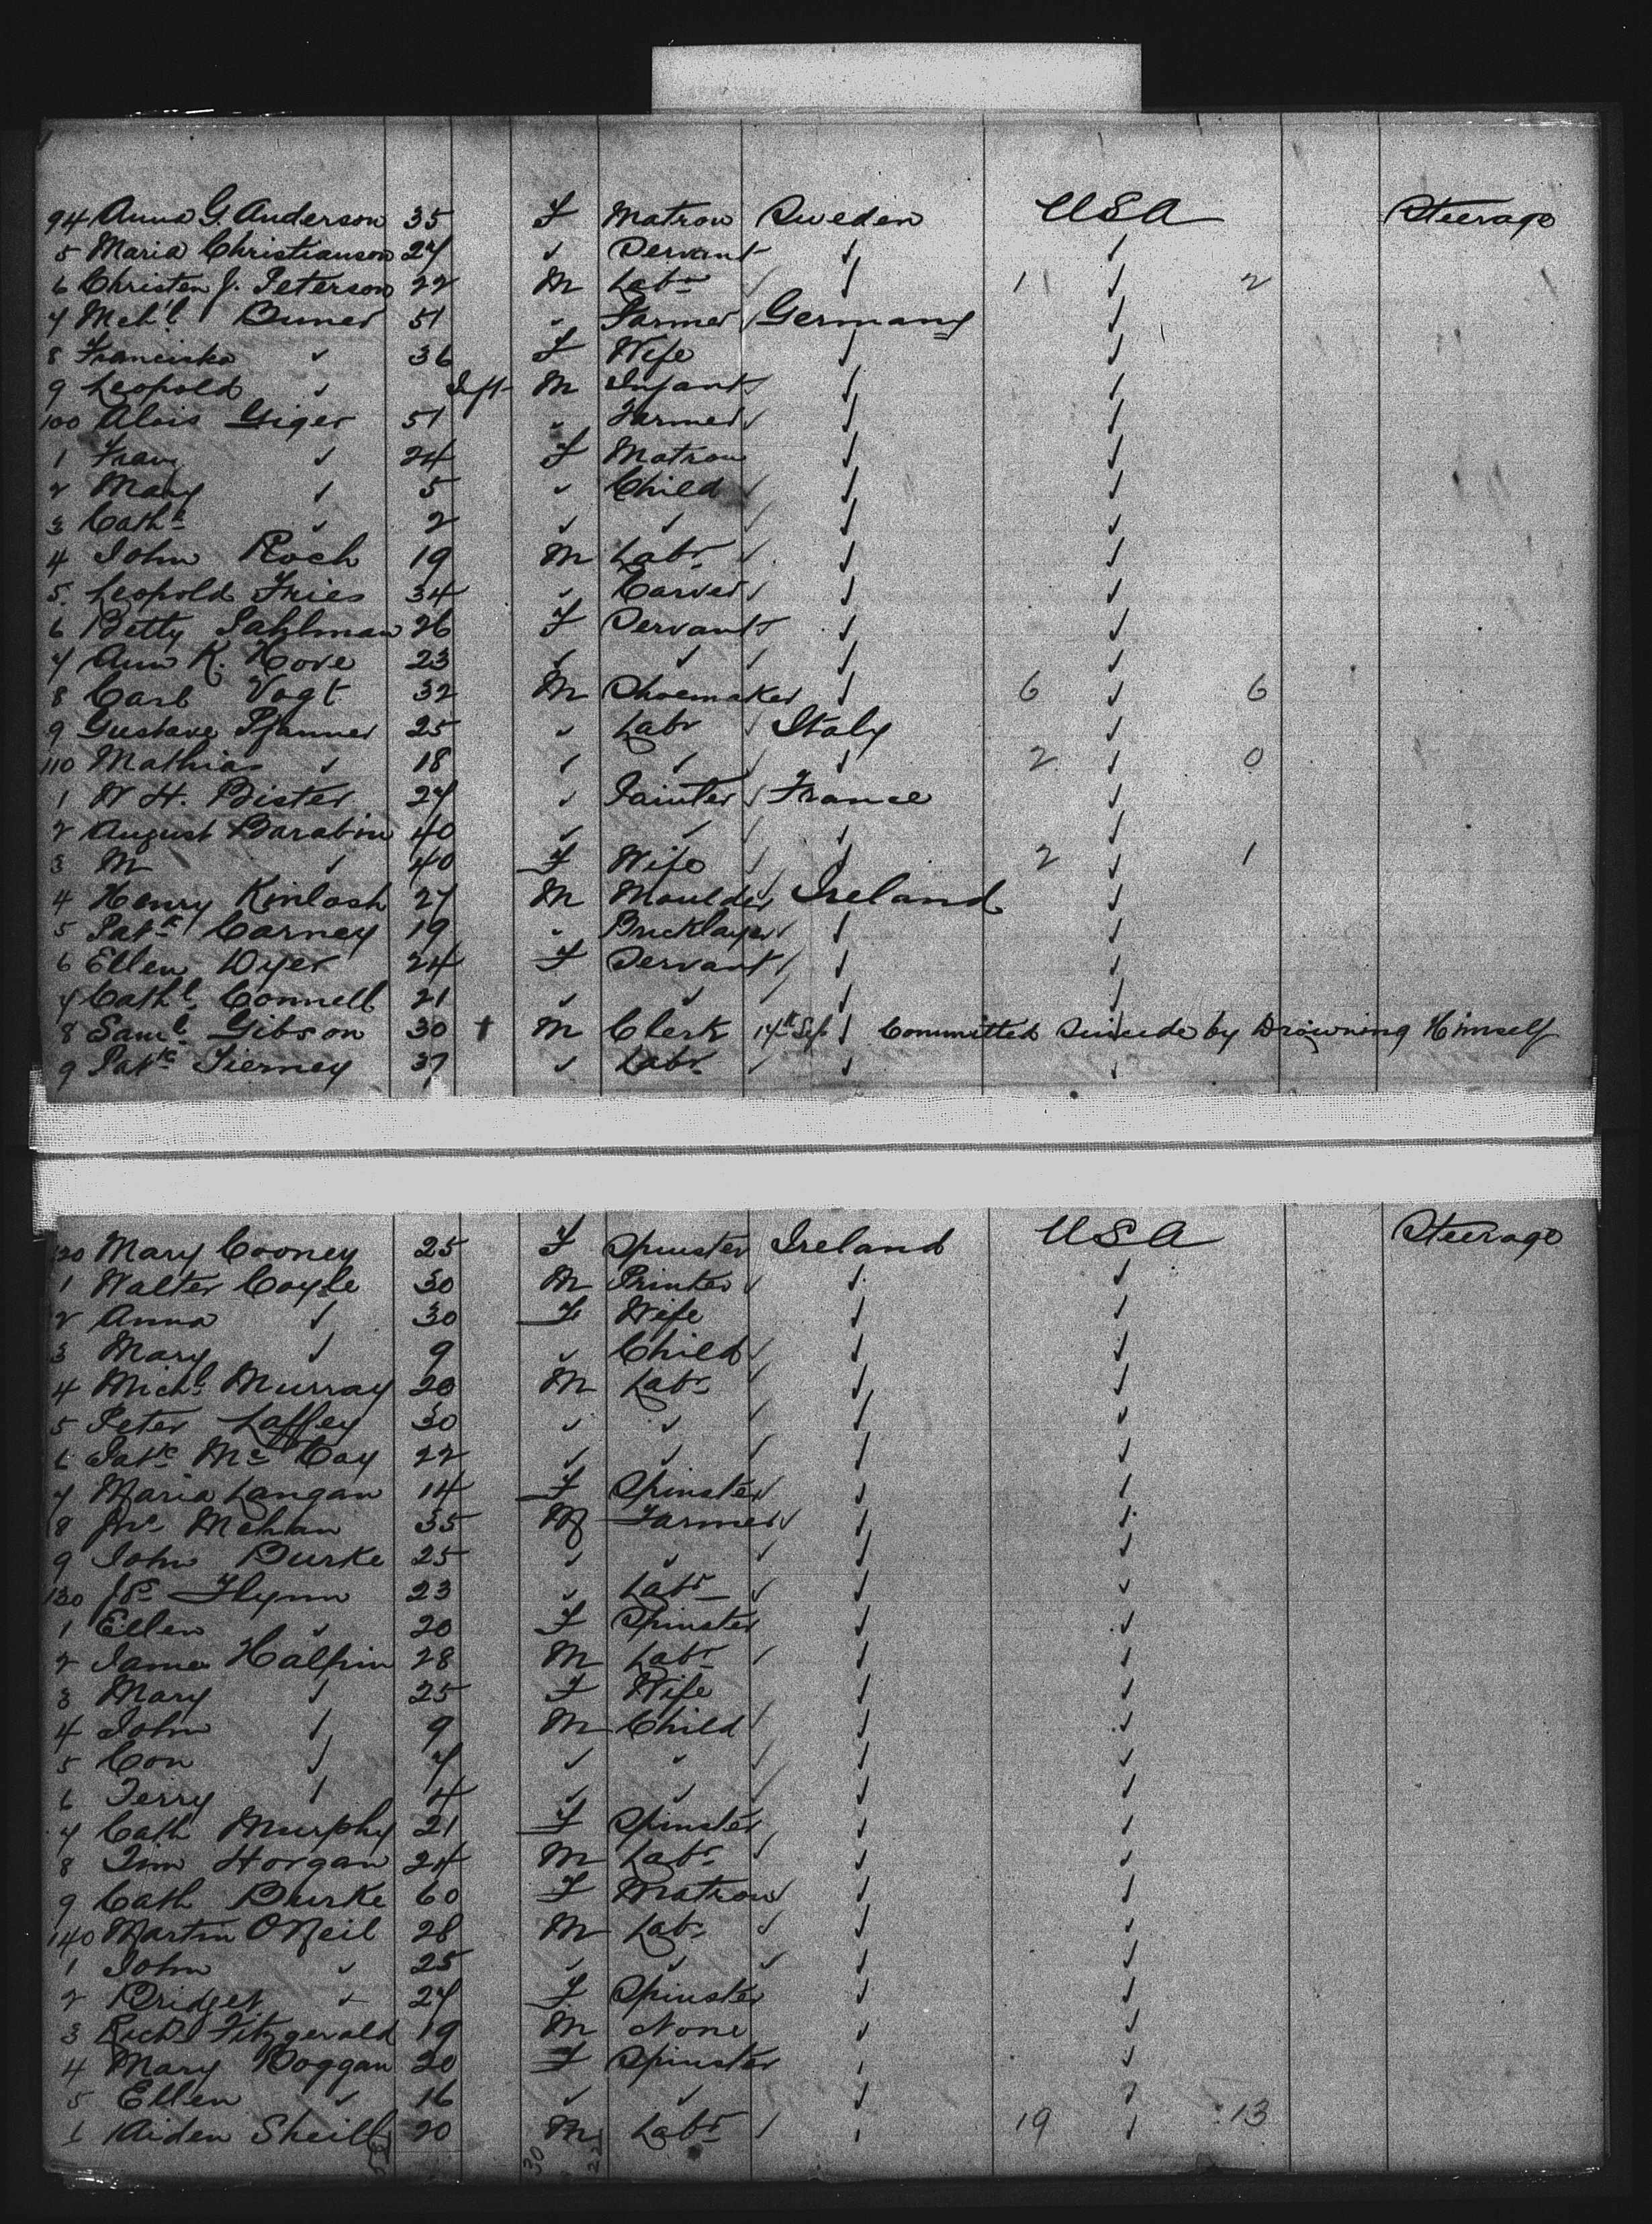 94 Anna G. Anderson 35 F Matron Sweden USA Steerage
5 Maria Christianson 27 ✓ Servant ✓ ✓
6 Christen J. Peterson 22 M Labr ✓ ✓ 11 ✓ 2
7 Mchl Buner 51 " Farmer Germany ✓
8 Franciska ✓ 36 F Wife ✓ ✓
9 Leopold ✓ Inft M Infant ✓ ✓
100 Alois Giger 51 " Farmer ✓ ✓
1 Franz ✓ 24 F Matron ✓ ✓
2 Mary ✓ 5 ✓ Child ✓ ✓
3 Cathe ✓ 2 ✓ ✓ ✓ ✓
4 John Roch 19 M Labr ✓ ✓
5 Leopold Fries 34 ✓ Carver ✓ ✓
6 Betty Sahlman 26 F Servant ✓ ✓
7 Ann K. Hove 23 ✓ ✓ ✓ ✓
8 Carl Vogt 32 M Shoemaker ✓ 6 ✓ 6
9 Gustave Pfanner 25 ✓ Labr Italy ✓
110 Mathias ✓ 18 ✓ ✓ ✓ 2 ✓ 0
1 W H. Bister 27 ✓ Painter France ✓
2 August Barabin 40 ✓ ✓ ✓ ✓
3 M ✓ 40 F Wife ✓ 2 ✓ 1
4 Henry Kinlosh 27 M Moulder Ireland ✓
5 Patk Carney 19 " Bricklayer ✓ ✓
6 Ellen Dyer 24 F Servant ✓ ✓
7 Cath. Connell 21 ✓ ✓ ✓ ✓
8 Saml Gibson 30 † M Clerk 14th Sept ✓ Committed Suicide by Drowning Himself
9 Patk Tierney 37 ✓ Labr ✓ ✓
120 Mary Cooney 25 F Spinster Ireland USA Steerage
1 Walter Coyle 30 M Printer ✓ ✓
2 Anna ✓ 30 F Wife ✓ ✓
3 Mary ✓ 9 ✓ Child ✓ ✓
4 Michl Murray 20 M Labr ✓ ✓
5 Peter Laffey 30 ✓ ✓ ✓ ✓
6 Patk Mc Coy 22 ✓ ✓ ✓ ✓
7 Maria Langan 14 F Spinster ✓ ✓
8 Jno Mehan 35 M Farmer ✓ ✓
9 John Burke 25 ✓ ✓ ✓ ✓
130 Flynn 23 ✓ Labr ✓ ✓
1 Ellen ✓ 20 F Spinster ✓ ✓
2 James Halpin 28 M Labr ✓ ✓
3 Mary ✓ 25 F Wife ✓ ✓
4 John ✓ 9 M Child ✓ ✓
5 Con ✓ 7 ✓ ✓ ✓ ✓
6 Terry ✓ 4 ✓ ✓ ✓ ✓
7 Cath Murphy 21 F Spinster ✓ ✓
8 Tim Horgan 24 M Labr ✓ ✓
9 Cath Burke 60 F Matron ✓ ✓
140 Martin O Neil 28 M Labr ✓ ✓
1 John ✓ 25 ✓ ✓ ✓ ✓
2 Bridget ✓ 27 F Spinster ✓ ✓
3 Richd Fitzgerald 19 M None ✓ ✓
4 Mary Boggan 20 F Spinster ✓ ✓
5 Ellen ✓ 16 ✓ ✓ ✓ ✓
6 Aiden Sheill 20 M Labr ✓ 19 ✓ 13